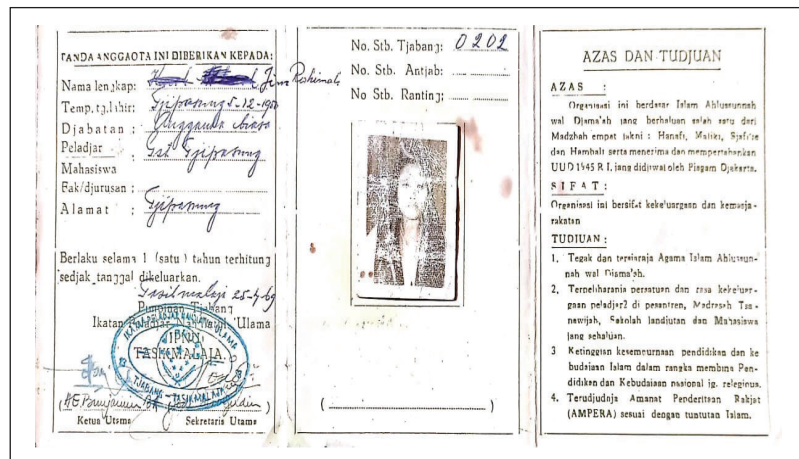 TANDA ANGGAOTA INI DIBERIKAN KEPADA:
Nama lengkap:
Temp, tg.lahir: Tjiparung 5-12-19
Djabatan : Anggauta biasa
Peladjar :
Mahasiswa
Fak/djurusan :
Alamat :
Berlaku selama 1 (satu) tahun terhitung
sedjak tanggal dikeluarkan.
Tasikmalaja 25-4-69
Pimpinan Tjabang
Ikatan Peladjar Nahdlatul Ulama
IPNU
TASIKMALAJA.
TJABANG - TASIKMALAJA
Ketua Utama Sekretaris Utama
No. Stb. Tjabang: 0202
No. Stb. Antjab:
No Stb. Ranting:
(                    )
AZAS DAN TUDJUAN
AZAS :
Organisasi ini berdasar Islam Ahlussunnah
wal Djama'ah jang berhaluan salah satu dari
Madzhab empat jakni : Hanafi, Maliki, Sjafi'ie
dan Hambali serta menerima dan mempertahankan
UUD 1945 R.I. jang didjiwai oleh Piagam Djakarta.
SIFAT:
Organisasi ini bersifat kekeluargaan dan kemasja-
rakatan
TUDJUAN :
1. Tegak dan tersiaraja Agama Islam Ahlussun-
nah wal Djama'ah.
2. Terpeliharanja persatuan dan rasa kekeluar-
gaan peladjar2 di pesantren, Madrasah Tsa-
nawijah, Sekolah landjutan dan Mahasiswa
jang sehaluan.
3 Ketinggian kesempurnaan pendidikan dan ke
budajaan Islam dalam rangka membina Pen-
didikan dan Kebudajaan nasional jg. religious.
4. Terudjudnja Amanat Penderitaan Rakjat
(AMPERA) sesuai dengan tuntutan Islam.